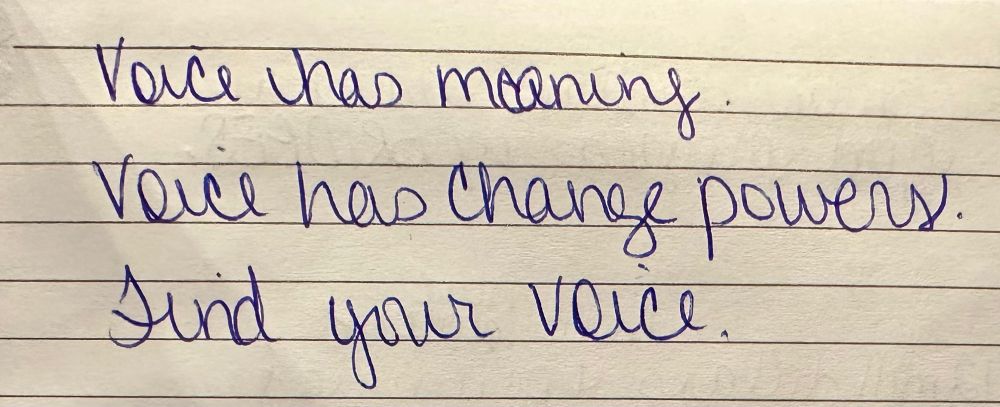 Voice has meaning.
Voice has change powers.
Find your voice.